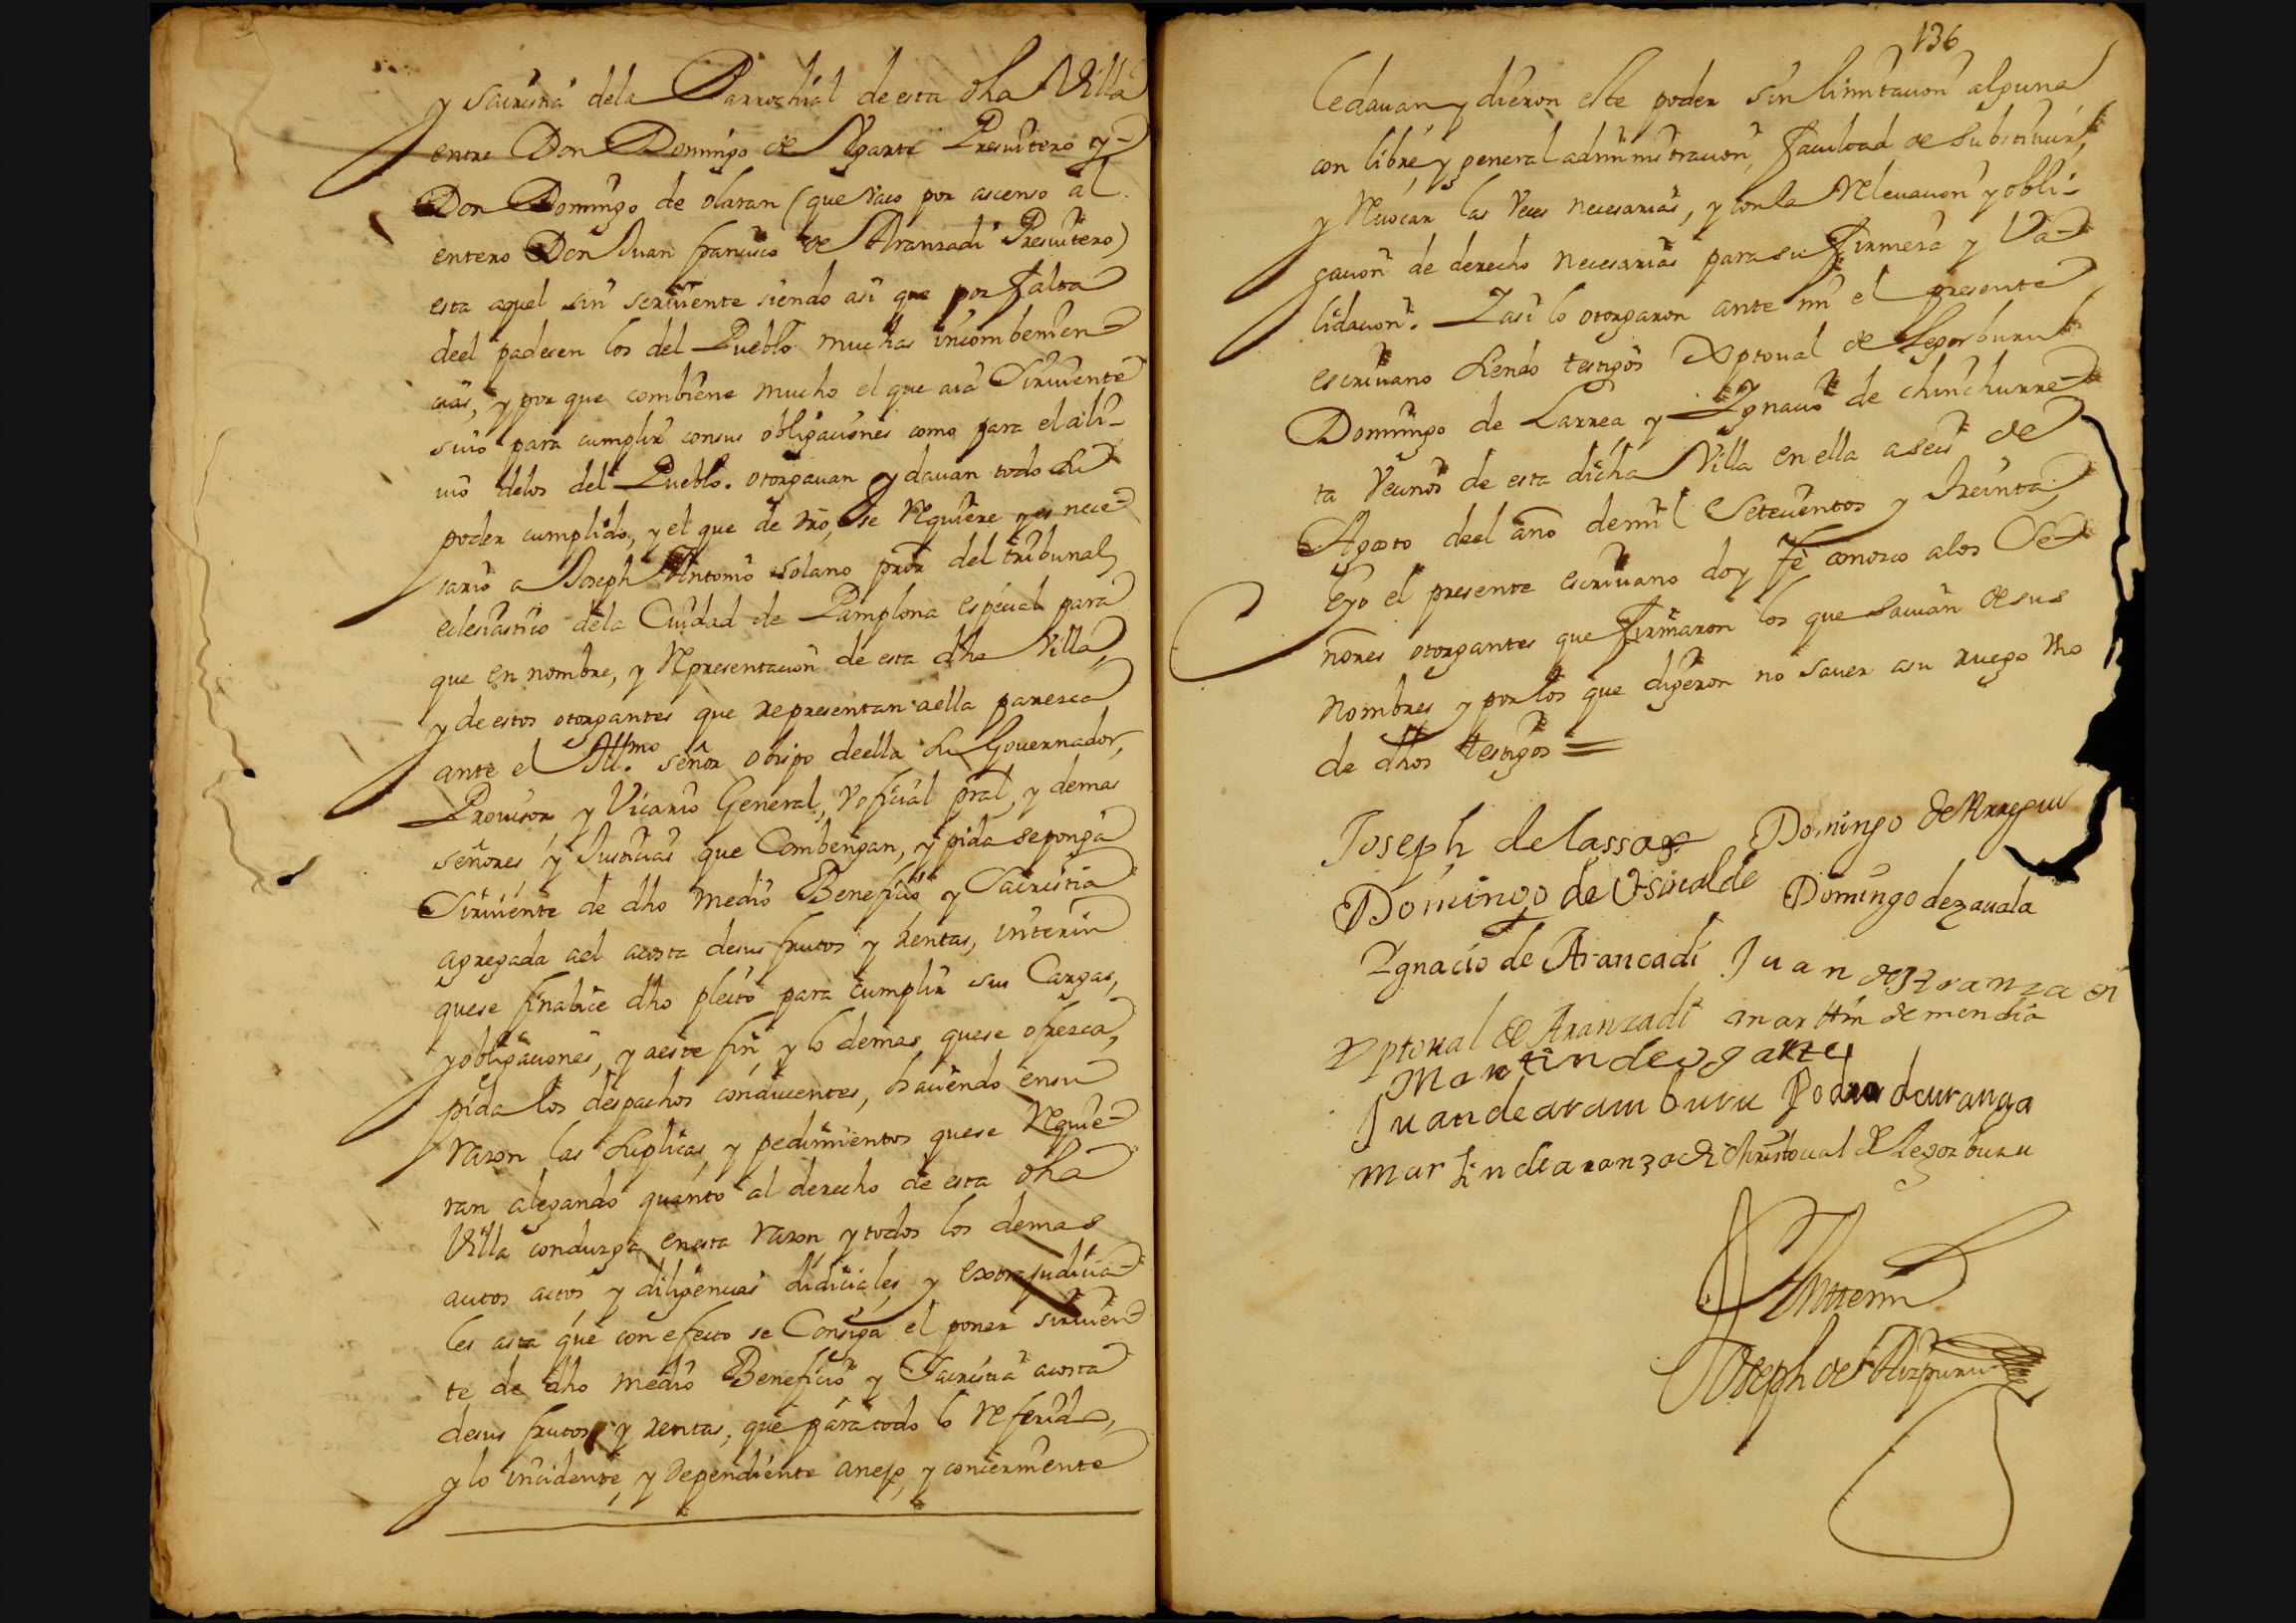 y Sacristia dela Parrochial de esta dha Villa
entre Don Domingo de Ugarte Presuitero y
Don Domingo de olaran (que vaco por ascenso al
entero Don Juan francisco de Aranzadi Presuitero)
esta aquel sin serviente siendo asi que por falta
deel padecen los del Pueblo muchas incombenien
cias, y por que combiene mucho el que aia Sirviente
suio para cumplir consus obligaciones como para el ali-
vio delos del Pueblo. otorgavan y davan todo su
poder cumplido, y el que de dro, se requiere y es nece
sario a Joseph Antonio Solano pror del tribunal
eclesiastico dela Ciudad de Pamplona especial para
que en nombre, y representacion de esta dha Villa,
y de estos otorgantes que representan aella paresca
ante el Illmo. señor obispo deella su Governador,
Provisor y Vicario General, v oficial pral, y demas
señores y Justicias que Combengan, y pida seponga
Sirviente de dho medio Beneficio y Sacristia
agregada ael acosta desus frutos y rentas, interin
quese finalice dho pleito para cumplir sus Cargas,
y obligaciones, y aeste fin, y lo demas quese ofresca,
pida los despachos conducentes, haviendo ensu
razon las suplicas, y pedimientos quese requie
ran alegando quanto al derecho de esta dha
Villa conduzga enesta razon y todos los demas
autos actos y diligencias Judiciales, y extrajudicia
les asta que con efecto se Consiga el poner sirvien
te de dho medio Beneficio y Sacristia acosta
desus frutos y rentas, que para todo lo referido,
y lo incidente, y dependiente anejo, y concerniente
136
ledavan y dieron este poder sin limitacion alguna
con libre y general administracion, facultad de substituir,
y revocar las veces necesarias, y con la relevacion y obli-
gacion de derecho necesarias para su firmeza y Va
lidacion. Y asi lo otorgaron ante mi el presente
escrivano siendo testigos Xptoval de Legorburu
Domingo de Larrea y Ygnacio de chinchurre
ta vecinos de esta dicha Villa en ella a seis de
Agosto deel año demil Setecientos y treinta,
Eyo el presente escrivano doy fè conosco alos Se
ñores otorgantes que firmaron los que savian de sus
nombres y por los que digeron no saver asu ruego vno
de dhos testigos =
Joseph de lassa Domingo de Arregui
Domingo de Osinalde Domingo dezavala
Ygnacio de Arancadi Juan de Aranzadi
Xptoval de Aranzadi marttin de mendia
Martin de ogarte
Juan de aramburu Pedro de uranga
Martin de aranzadi Christoval de Legorburu
Antemi
Joseph de Aizpuru